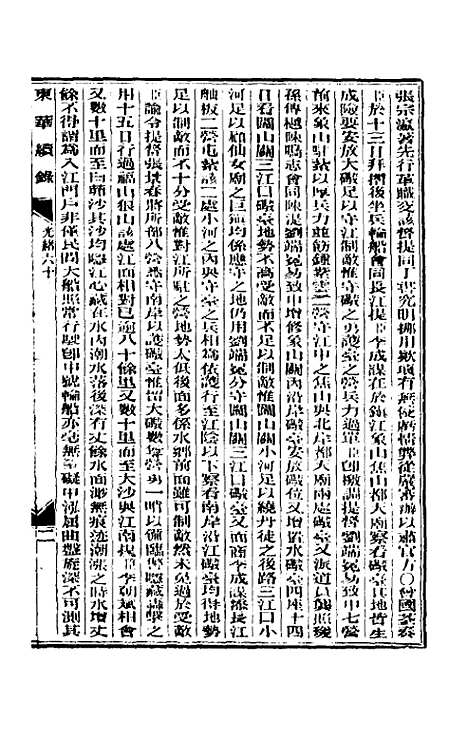 張宗瀛著先行革職交該督提同丁澤究明挪用欺飾有無侵虧情弊從嚴審辦以肅官方〇曾國荃奏
臣於十三日拜摺後坐兵輪船會同長江提臣李成謀在於鎮江象山焦山都天廟察看礮臺其地皆生
成險要安放大礮足以守江制敵惟守礮之勇護臺之營兵力過單臣卽檄調提督劉端冕易致中七營
前來象山駐紮以厚兵力並飭鍾紫雲二營守江中之焦山與北岸都天廟兩處礮臺又派道員龔照瑗
係傅樾陳鳴志會同陳湜劉端冕易致中增修象山關內沿岸礮臺安放礮位又增築水礮臺四座十四
日看圌山關三江口礮臺地勢不爲受敵足以制敵惟守圌山關小河足以繞丹徒之後路三江口小
河足以顧仙女廟之巨鎭均係應守之地仍用劉端冕分守圌山關三江口礮臺又面商李成謀添長江
舢板二營屯紮該二處小河之內與守臺之兵相爲依護行至江陰以下察看南岸沿江礮臺均得地勢
足以制敵而不十分受敵惟對江所駐之營地勢太低後面多係水鄉前面雖可制敵然未免過於受敵
臣諭令提督張景春將所部八營爲守南岸以護礮臺惟留大礮數尊營勇一哨以備臨時隱藏轟擊之
用十五日行過福山狼山該處江面相對已逾八十餘里又數十里而至大沙與江南提臣李朝斌相會
又數十里而至白茆沙其沙均隱江心藏在水內潮水落後深有丈餘水面渺無痕迹潮漲之時水增丈
餘不得謂爲入江門戶非僅民間大船照常行駛卽中號輪船亦毫無窒礙中泓屈曲盤旋深不可測其
東華續錄
光緒六十
二